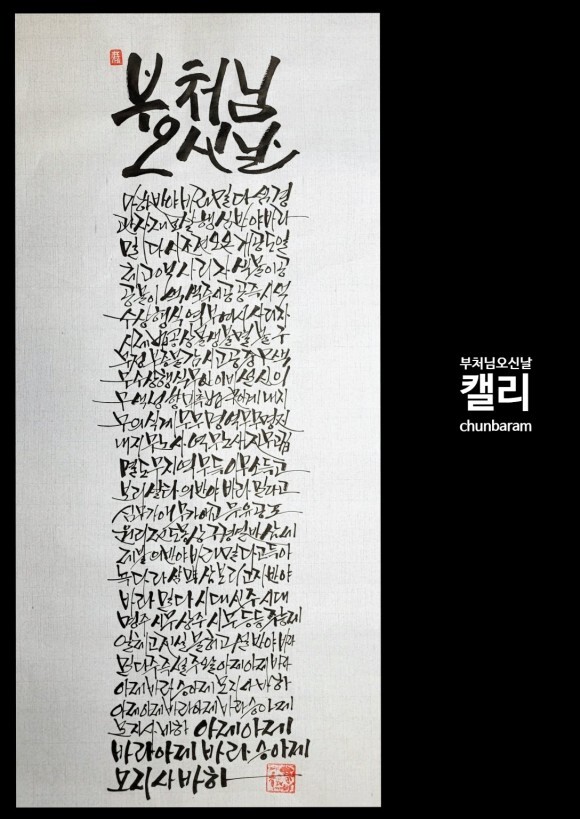 부처님
오신날
마하반야바라밀다심경
관자재보살행심반야바라
밀다시조견오온개공도일
체고액사리자색불이공
공불이색색즉시공공즉시색
수상행식역부여시사리자
시제법공상불생불멸불구
부정부증불감시고공중무색
무수상행식무안이비설신의
무색성향미촉법무안계내지
무의식계무무명역무무명진
내지무노사역무노사진무고집
멸도무지역무득이무소득고
보리살타의반야바라밀다고
심무가애무가애고무유공포
원리전도몽상구경열반삼세
제불의반야바라밀다고득아
뇩다라삼먁삼보리고지반야
바라밀다시대신주시대
명주시무상주시무등등주능제
일체고진실불허고설반야바라
밀다주즉설주왈아제아제바라
아제바라승아제모지사바하
아제아제바라아제바라승아제
모지사바하 아제아제
바라아제 바라승아제
모지사바하
부처님오신날
캘리
chunbaram